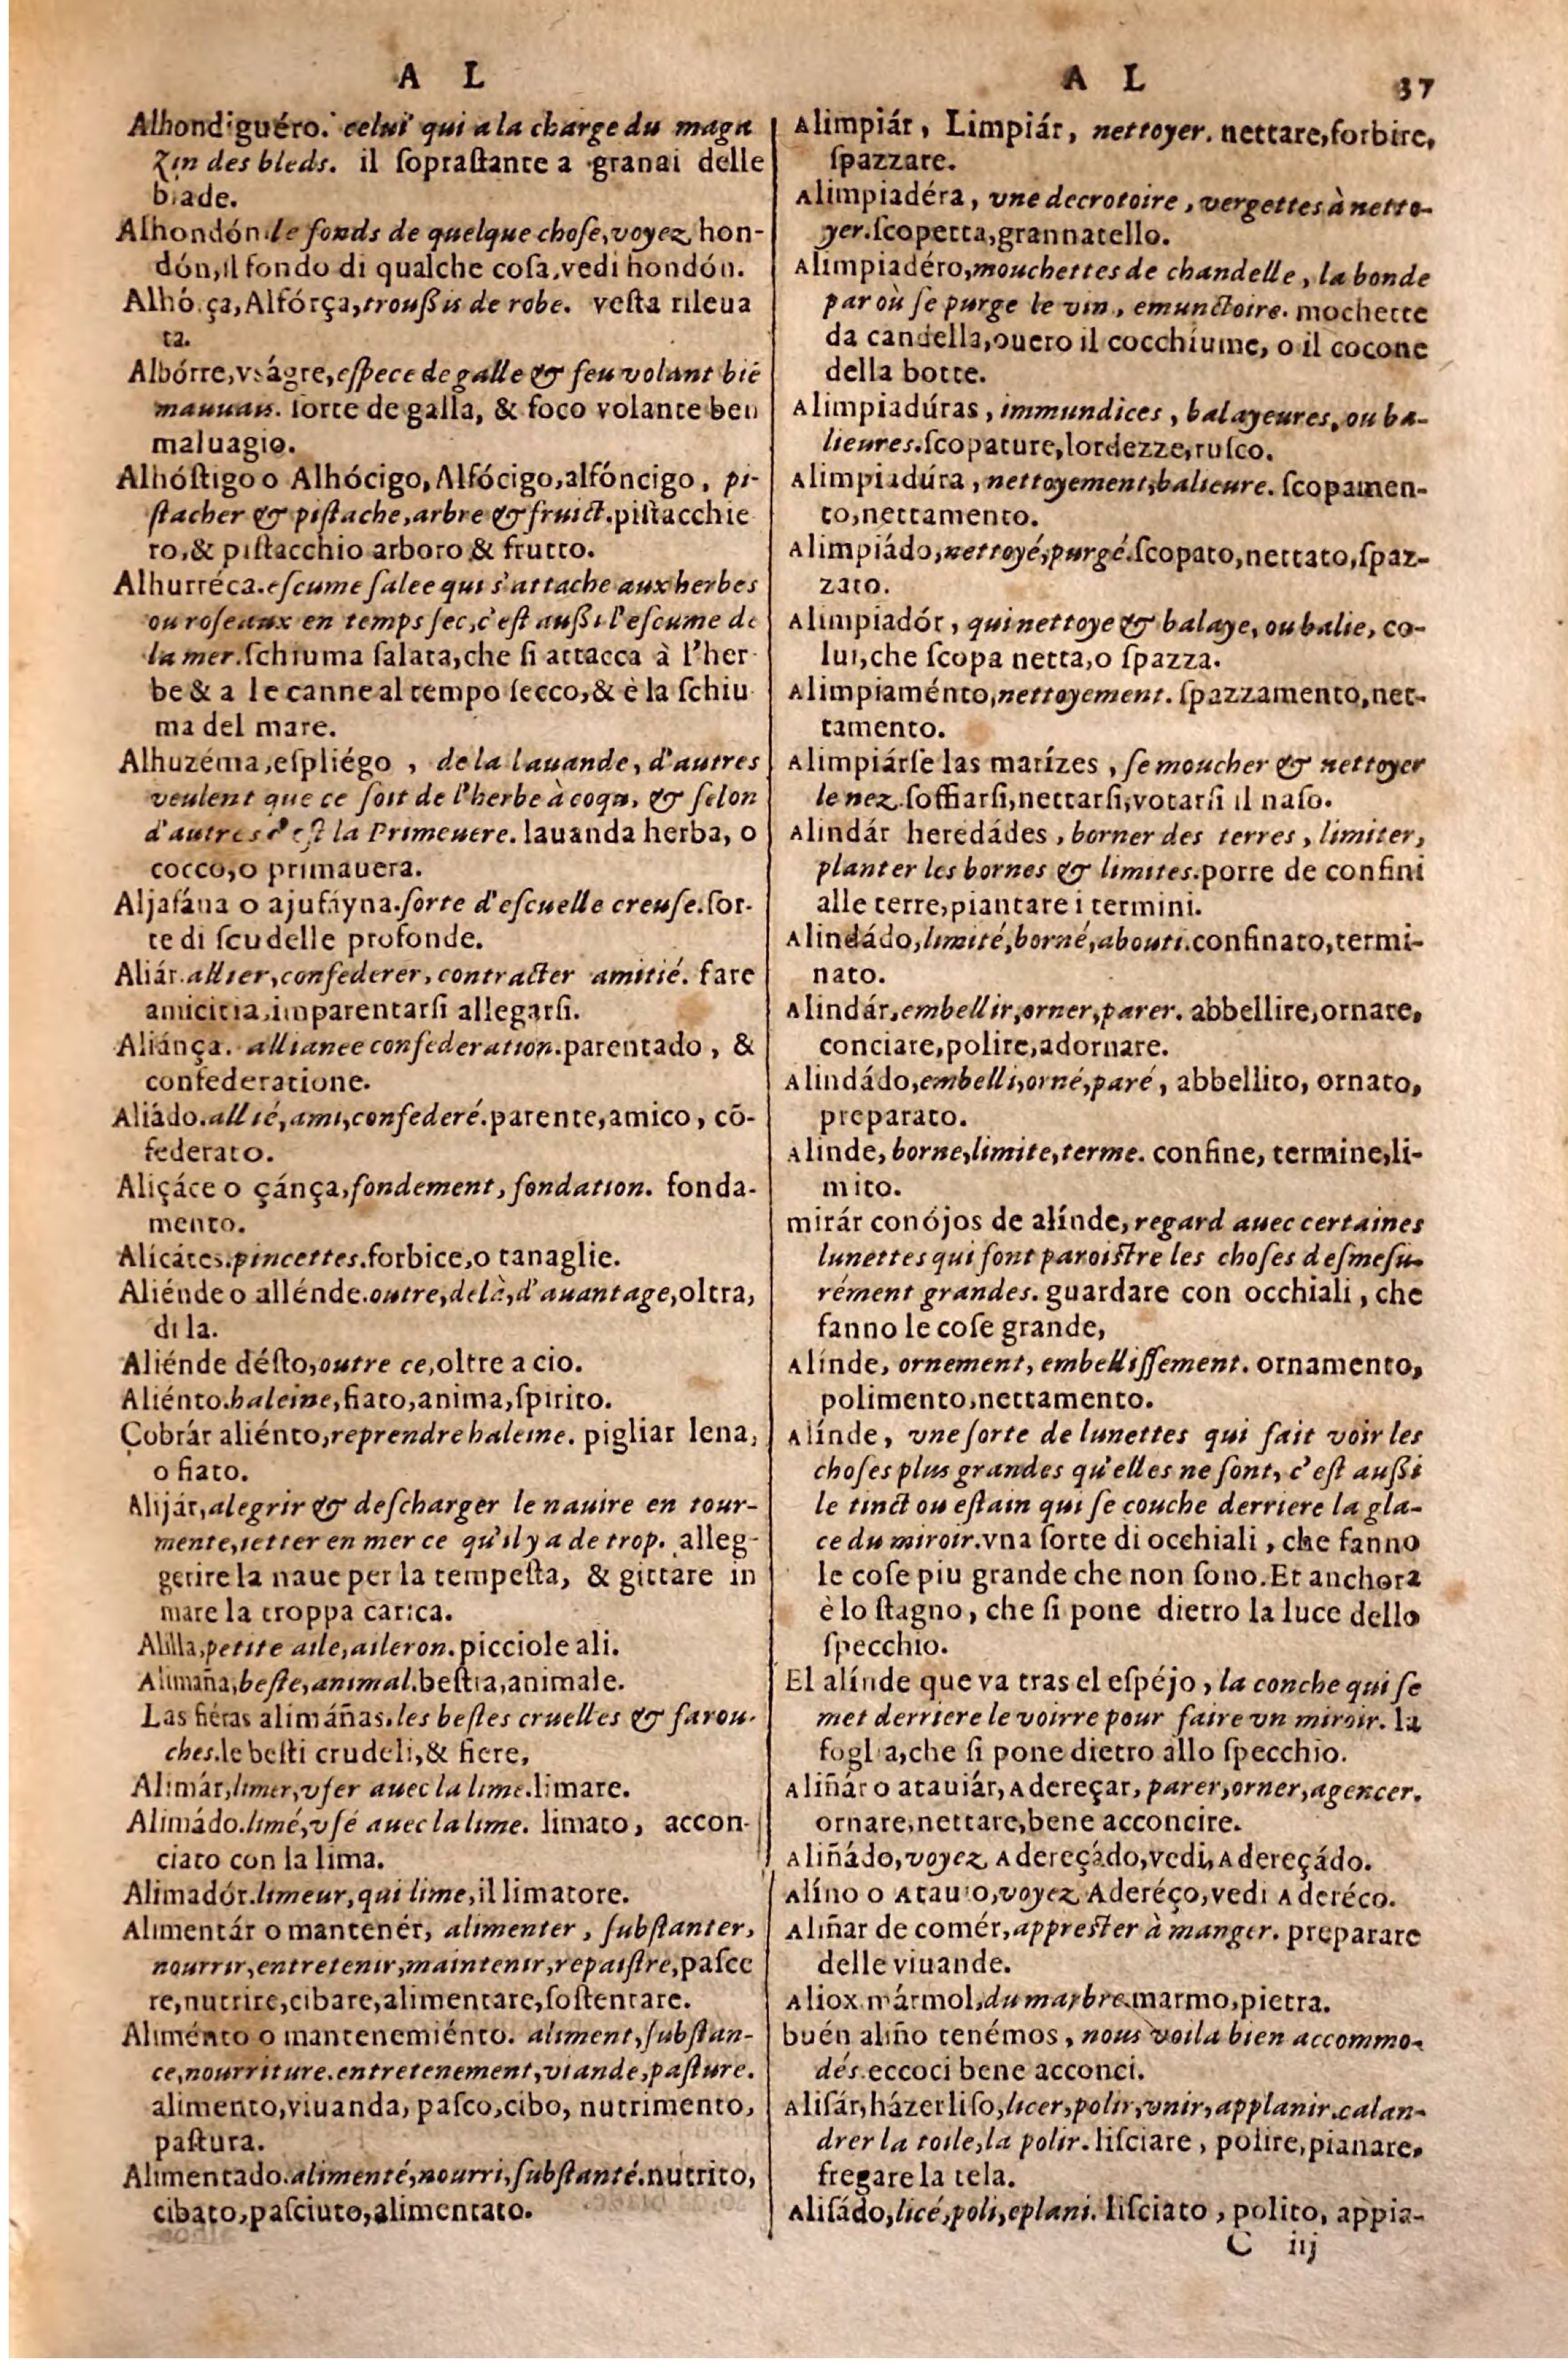 A L
Alhondiguéro. celui qui a la charge du maga
zin des bleds. il ſopraſtante a granai delle
biade.
Alhondón. le fonds de quelque choſe, voyez hon-
dón, il fondo di qualche coſa, vedi hondón.
Alhó.ça, Alfórça, trouſsis de robe. veſta rileua
ta.
Albórre, vságre, eſpece de galle & feu volant biē
mauuais. ſorte de galla, & foco volante ben
maluagio.
Alhóſtigo o Alhócigo, Alfócigo, alfóncigo, pi-
ſtacher & piſtache, arbre & fruict. piſtacchie
ro, & piſtacchio arboro & frutto.
Alhurréca. eſcume ſalee qui s'attache aux herbes
ou roſeaux en temps ſec, c'eſt auſsi l'eſcume de
la mer. ſchiuma ſalata, che ſi attacca à l'her
be & a le canne al tempo ſecco, & è la ſchiu
ma del mare.
Alhuzéma, eſpliégo , de la lauande, d'autres
veulent que ce ſoit de l'herbe à coqu, & ſelon
d'autres c'eſt la Primeuere. lauanda herba, o
cocco, o primauera.
Aljafána o ajufáyna. ſorte d'eſcuelle creuſe. ſor-
te di ſcudelle profonde.
Aliár. allier, confederer, contracter amitié. fare
amicitia, imparentarſi allegarſi.
Aliánça. alliance confederation. parentado , &
confederatione.
Aliádo. allié, ami, confederé. parente, amico , cō-
federato.
Aliçáce o çánça, fondement, fondation. fonda-
mento.
Alicátes. pincettes. forbice, o tanaglie.
Aliénde o allénde. outre, delà, d'auantage, oltra,
di la.
Aliénde déſto, outre ce, oltre a cio.
Aliénto. haleine, fiato, anima, ſpirito.
Çobrár aliénto, reprendre haleine. pigliar lena,
o fiato.
Alijár, alegrir & deſcharger le nauire en tour-
mente, ietter en mer ce qu'il y a de trop. alleg-
gerire la naue per la tempeſta, & gittare in
mare la troppa carica.
Alilla, petite aile, aileron. picciole ali.
Alimaña, beſte, animal. beſtia, animale.
Las fiéras alimáñas. les beſtes cruelles & farou-
ches. le beſti crudeli, & fiere,
Alimár, limer, vſer auec la lime. limare.
Alimádo. limé, vſé auec la lime. limato, accon-
ciato con la lima.
Alimadór. limeur, qui lime, il limatore.
Alimentár o mantenér, alimenter , ſubſtanter,
nourrir, entretenir, maintenir, repaiſtre, paſce
re, nutrire, cibare, alimentare, ſoſtentare.
Aliménto o mantenemiénto. aliment, ſubſtan-
ce, nourriture. entretenement, viande, paſture.
alimento, viuanda, paſco, cibo, nutrimento,
paſtura.
Alimentado. alimenté, nourri, ſubſtanté. nutrito,
cibato, paſciuto, alimentato.
A L 37
Alimpiár, Limpiár, nettoyer. nettare, forbire,
ſpazzare.
Alimpiadéra, vne decrotoire, vergettes à netto-
yer. ſcopetta, grannatello.
Alimpiadéro, mouchettes de chandelle, la bonde
par où ſe purge le vin, emunctoire. mochette
da candella, ouero il cocchiume, o il cocone
della botte.
Alimpiadúras, immundices, balayeures, ou ba-
lieures. ſcopature, lordezze, ruſco.
Alimpiadúra, nettoyement, balieure. ſcopamen-
to, nettamento.
Alimpiádo, nettoyé, purgé. ſcopato, nettato, ſpaz-
zato.
Alimpiadór, qui nettoye & balaye, ou balie, co-
lui, che ſcopa netta, o ſpazza.
Alimpiaménto, nettoyement. ſpazzamento, net-
tamento.
Alimpiárſe las marízes, ſe moucher & nettoyer
le nez. ſoffiarſi, nettarſi, votarſi il naſo.
Alindár heredádes, borner des terres, limiter,
planter les bornes & limites. porre de confini
alle terre, piantare i termini.
Alindádo, limité, borné, abouti. confinato, termi-
nato.
Alindár, embellir, orner, parer. abbellire, ornare,
conciare, polire, adornare.
Alindádo, embelli, orné, paré, abbellito, ornato,
preparato.
Alinde, borne, limite, terme. confine, termine, li-
mito.
mirár conójos de alínde, regard auec certaines
lunettes qui font paroiſtre les choſes deſmeſu-
rément grandes. guardare con occhiali, che
fanno le coſe grande,
Alínde, ornement, embelliſſement. ornamento,
polimento, nettamento.
Alínde, vne ſorte de lunettes qui fait voir les
choſes plus grandes qu'elles ne ſont, c'eſt auſsi
le tinct ou eſtain qui ſe couche derriere la gla-
ce du miroir. vna ſorte di occhiali, che fanno
le coſe piu grande che non ſono. Et anchora
è lo ſtagno, che ſi pone dietro la luce dello
ſpecchio.
El alínde que va tras el eſpéjo, la conche qui ſe
met derriere le voirre pour faire vn miroir. la
foglia, che ſi pone dietro allo ſpecchio.
Aliñár o atauiár, Adereçar, parer, orner, agencer.
ornare, nettare, bene acconcire.
Aliñádo, voyez Adereçádo, vedi, Adereçádo.
Alíno o Atauio, voyez Aderéço, vedi Aderéco.
Aliñar de comér, appreſter à manger. preparare
delle viuande.
Aliox mármol, du marbre. marmo, pietra.
buén aliño tenémos, nous voila bien accommo-
dés. eccoci bene acconci.
Aliſár, házer liſo, licer, polir, vnir, applanir. calan-
drer la toile, la polir. liſciare, polire, pianare,
fregare la tela.
Aliſádo, licé, poli, eplani. liſciato, polito, appia-
C iij